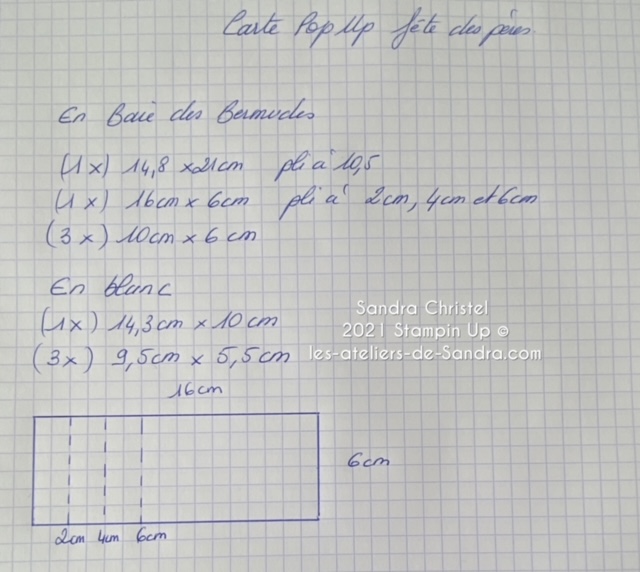 Carte Pop Up fête des pères.
En Baie des Bermudes
(1x) 14,8 x 21cm pli à 10,5
(1x) 16cm x 6cm pli à 2cm, 4cm et 6cm
(3x) 10cm x 6cm
En blanc
(1x) 14,3cm x 10cm
(3x) 9,5cm x 5,5cm
Sandra Christel
2021 Stampin Up ©
les-ateliers-de-Sandra.com
16cm
6cm
2cm 4cm 6cm